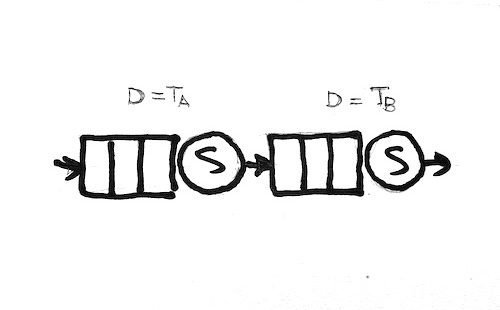 D = TA
D = TB
S
S